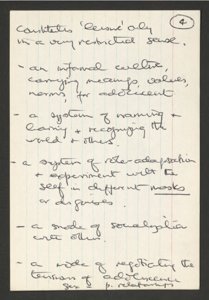 4
constitutes 'leisure' only
in a very restricted sense.
- an informal culture,
carrying meanings, values,
norms, for adolescent
- a system of naming &
learning & recognizing the
world & others.
- a system of role-adaptation
& experiment with the
self in different masks
or disguises.
- a mode of socialization
with others.
- a mode of negotiating the
tensions of adolescence
sex & p. relationships